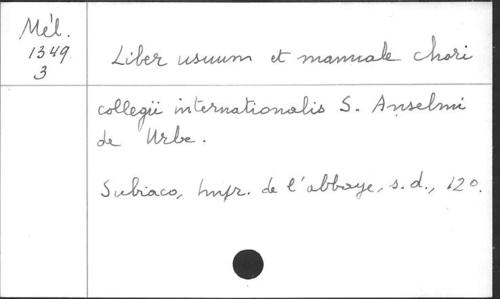 Mél.
1349
3
Liber usuum et manuale chori
collegii internationalis S. Anselmi
de Urbe.
Subiaco, Impr. de l'abbaye, s.d., 12o.